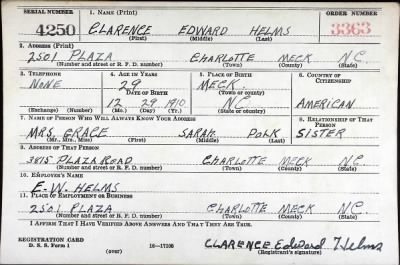 SERIAL NUMBER 1. NAME (Print) ORDER NUMBER
4250 CLARENCE EDWARD HELMS 3363
(First) (Middle) (Last)
2. ADDRESS (Print)
2501 PLAZA CHARLOTTE MECK N.C.
(Number and street or R. F. D. number) (Town) (County) (State)
3. TELEPHONE 4. AGE IN YEARS 5. PLACE OF BIRTH 6. COUNTRY OF CITIZENSHIP
NONE 29 MECK.
DATE OF BIRTH (Town or county)
12 29 1910 N.C. AMERICAN
(Exchange) (Number) (Mo.) (Day) (Yr.) (State or country)
7. NAME OF PERSON WHO WILL ALWAYS KNOW YOUR ADDRESS 8. RELATIONSHIP OF THAT PERSON
MRS. GRACE SARAH POLK SISTER
(Mr., Mrs., Miss) (First) (Middle) (Last)
9. ADDRESS OF THAT PERSON
3815 PLAZA ROAD CHARLOTTE MECK N.C.
(Number and street or R. F. D. number) (Town) (County) (State)
10. EMPLOYER'S NAME
E.W. HELMS
11. PLACE OF EMPLOYMENT OR BUSINESS
2501 PLAZA CHARLOTTE MECK N.C.
(Number and street or R. F. D. number) (Town) (County) (State)
I AFFIRM THAT I HAVE VERIFIED ABOVE ANSWERS AND THAT THEY ARE TRUE.
REGISTRATION CARD
D. S. S. Form 1 (over) 16—17105 CLARENCE Edward Helms
(Registrant's signature)